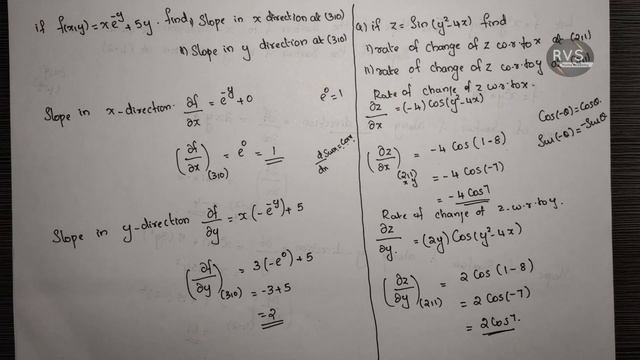 if f(x,y)=xe^{-y}+5y. find i) Slope in x direction at (3,0)
ii) Slope in y direction at (3,0)
Slope in x-direction. ∂f/∂x = e^{-y}+0
e^0=1
(∂f/∂x)(3,0) = e^0 = 1
d sinx/dx = cosx
Slope in y-direction ∂f/∂y = x(-e^{-y})+5
(∂f/∂y)(3,0) = 3(-e^0)+5
= -3+5
= 2
Q) if z = Sin(y²-4x) find
i) rate of change of z w.r.to x at (2,1)
ii) rate of change of z w.r.to y at (2,1)
RVS
Rate of change of z w.r.to x.
∂z/∂x = (-4) cos(y²-4x)
Cos(-θ)=Cosθ.
Sin(-θ)=-Sinθ
(∂z/∂x)(2,1) = -4 cos (1-8)
x y
= -4 cos(-7)
= -4 cos7
Rate of change of z.w.r.to y.
∂z/∂y = (2y) Cos(y²-4x)
(∂z/∂y)(2,1) = 2 cos (1-8)
= 2 cos(-7)
= 2 cos7.